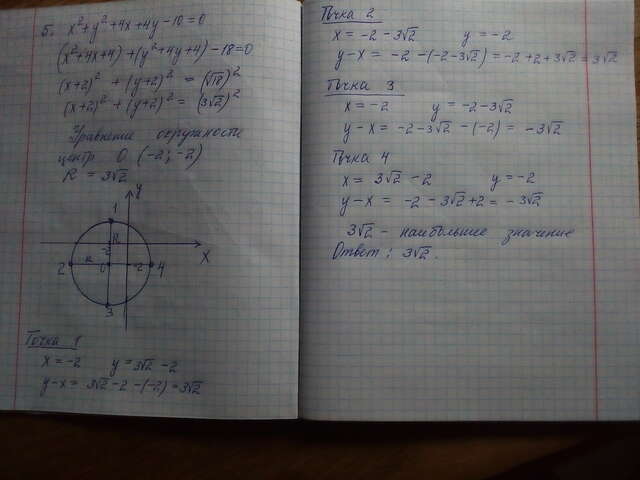 5. x² + y² + 4x + 4y - 10 = 0
(x² + 4x + 4) + (y² + 4y + 4) - 18 = 0
(x+2)² + (y+2)² = (√18)²
(x+2)² + (y+2)² = (3√2)²
Уравнение окружности
центр O (-2; -2)
R = 3√2
y
1
R
-2
x
2
R
0
-2
4
3
Точка 1
x = -2 y = 3√2 - 2
y-x = 3√2 - 2 - (-2) = 3√2
Точка 2
x = -2 - 3√2 y = -2
y-x = -2 - (-2-3√2) = -2 + 2 + 3√2 = 3√2
Точка 3
x = -2 y = -2-3√2
y-x = -2-3√2 - (-2) = -3√2
Точка 4
x = 3√2 - 2 y = -2
y-x = -2 - 3√2 + 2 = -3√2
3√2 - наибольшее значение
Ответ: 3√2.